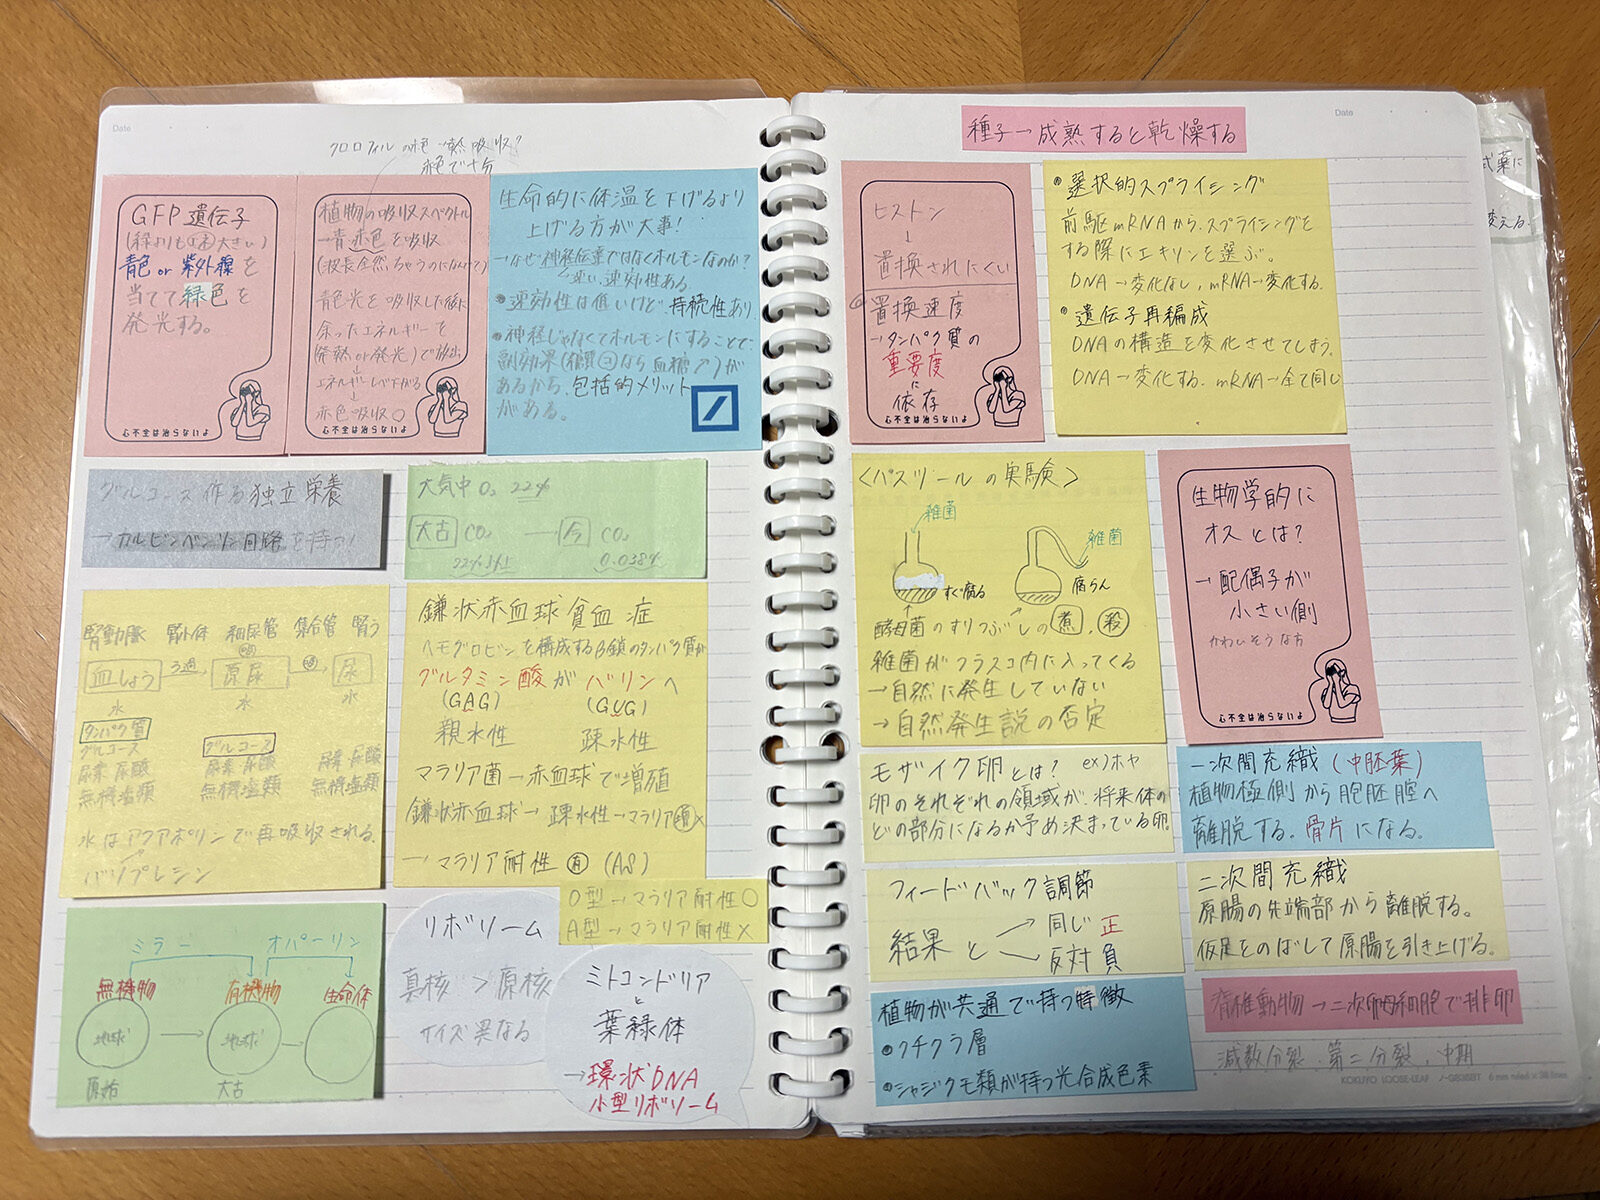 Date
クロロフィルの赤色→熱吸収?
赤色で十分
GFP遺伝子
青色or紫外線を
当てて緑色を
発光する。
心不全は治らないよ
植物の吸収スペクトル
→青赤色を吸収
青光を吸収した後に
余ったエネルギーを
発熱or発光)で放出
→エネルギーレベル下がる
赤色吸収○
心不全は治らないよ
生命的に体温を下げるより
上げる方が大事!
→なぜ神経伝達ではなくホルモンなのか?
速い、速効性ある
•速効性は低いけど、持続性あり
•神経じゃなくてホルモンにすることで、
副効果(糖質コなら血糖↗)が
あるから、包括的メリット
がある。
グルコース作る独立栄養
→カルビンベンソン回路を持つ!
大気中O₂ 22%
太古 CO₂ → 今 CO₂
0.038%
腎動脈 腎小体 細尿管 集合管 腎う
血しょう ろ過→ 原尿 → 尿
水 水 水
タンパク質
グルコース グルコース
尿素 尿酸 尿素 尿酸 尿素 尿酸
無機塩類 無機塩類 無機塩類
水はアクアポリンで再吸収される。
バソプレシン
鎌状赤血球貧血症
ヘモグロビンを構成するβ鎖のタンパク質が
グルタミン酸が バリンへ
(GAG) (GUG)
親水性 疎水性
マラリア菌→赤血球で増殖
鎌状赤血球→疎水性→マラリア増×
→マラリア耐性有(AS)
O型→マラリア耐性○
A型→マラリア耐性×
ミラー オパーリン
無機物 有機物 生命体
地球 → 地球 →
原始 太古
リボソーム
真核>原核
サイズ異なる
ミトコンドリア
と
葉緑体
→環状DNA
小型リボソーム
Date
種子→成熟すると乾燥する
ヒストン
↓
置換されにくい
置換速度
→タンパク質の
重要度
に
依存
心不全は治らないよ
•選択的スプライシング
前駆mRNAから、スプライシングを
する際にエキソンを選ぶ。
DNA→変化なし、mRNA→変化する。
•遺伝子再編成
DNAの構造を変化させてしまう。
DNA→変化する、mRNA→全て同じ
<パスツールの実験>
雑菌
雑菌
すぐ腐る 腐らん
酵母菌のすりつぶしの煮、殺
雑菌がフラスコ内に入ってくる
→自然に発生していない
→自然発生説の否定
生物学的に
オスとは?
→配偶子が
小さい側
かわいそうな方
心不全は治らないよ
モザイク卵とは? ex)ホヤ
卵のそれぞれの領域が、将来体の
どの部分になるか予め決まっている卵。
一次間充織(中胚葉)
植物極側から胞胚腔へ
離脱する。骨片になる。
フィードバック調節
結果と→同じ 正
→反対 負
二次間充織
原腸の先端部から離脱する。
仮足をのばして原腸を引き上げる。
植物が共通で持つ特徴
•クチクラ層
•シャジクモ類が持つ光合成色素
脊椎動物→二次卵母細胞で排卵
減数分裂、第二分裂、中期
KOKUYO LOOSE-LEAF 6 mm ruled × 36 lines
式薬に
変える。